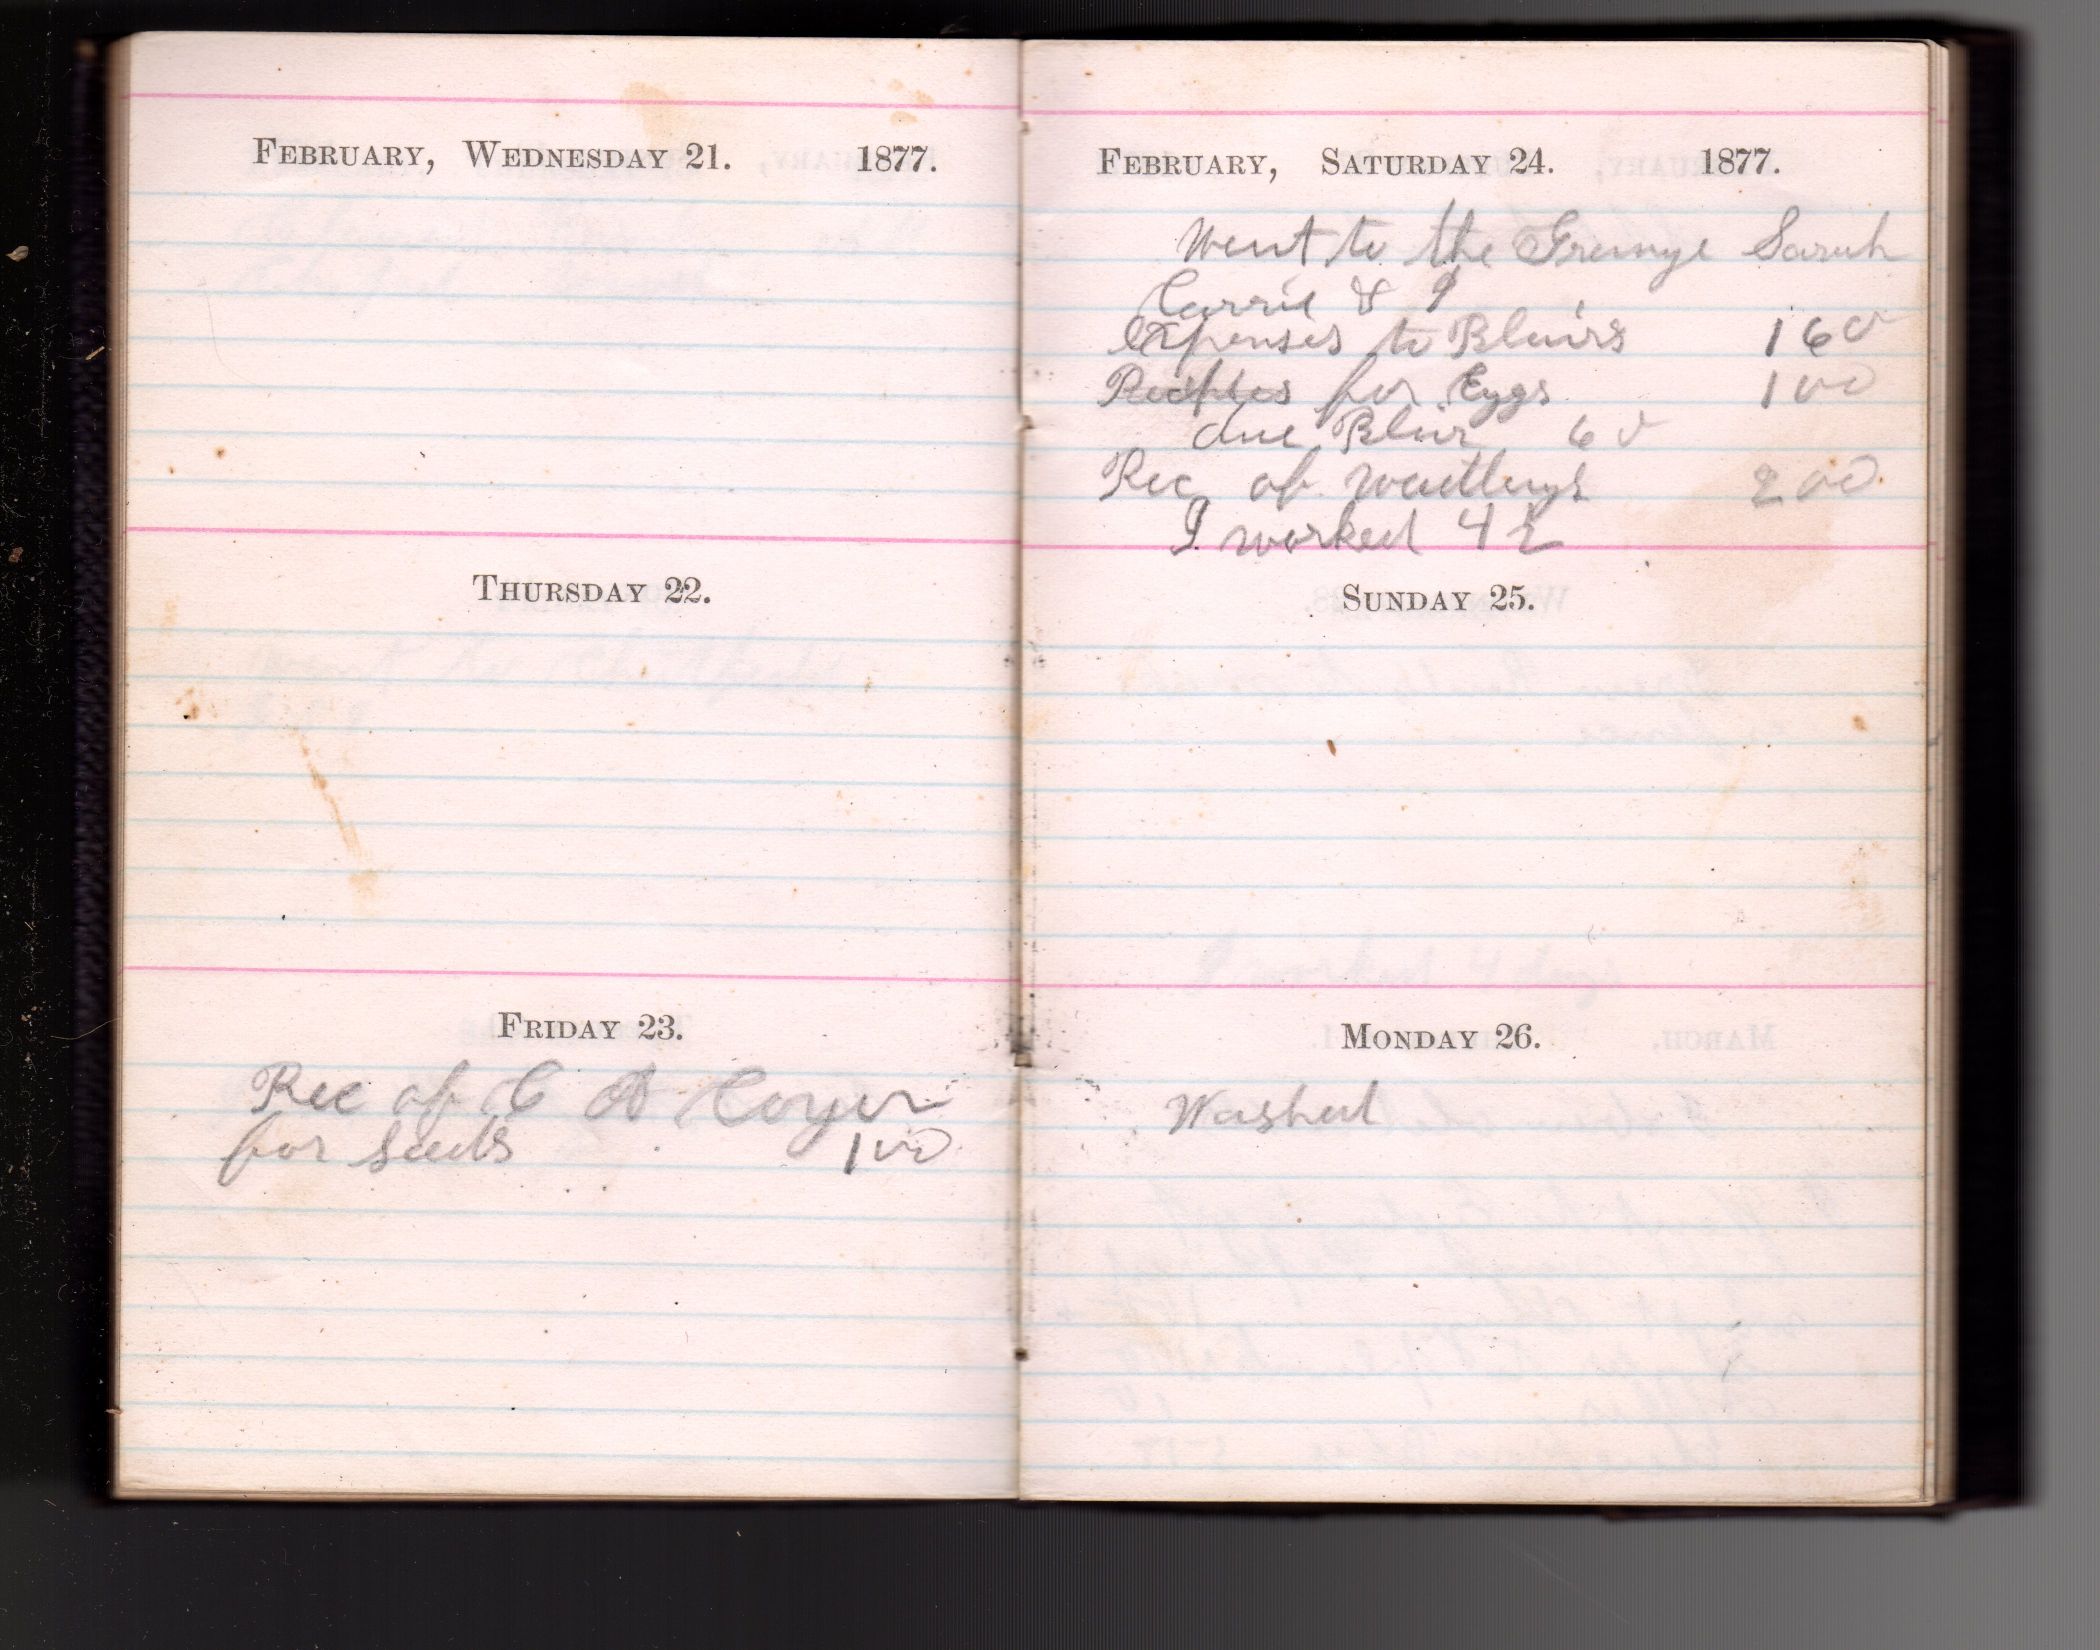 FEBRUARY, WEDNESDAY 21. 1877.
THURSDAY 22.
FRIDAY 23.
Rec of C A Coyer
for seeds 1 00
FEBRUARY, SATURDAY 24. 1877.
Went to the Grange Sarah
Carrie & I
Expenses to Blairs 1 60
for Eggs 1 00
due Blair 60
Rec of 2 00
I worked 4 1/2
SUNDAY 25.
MONDAY 26.
Washed